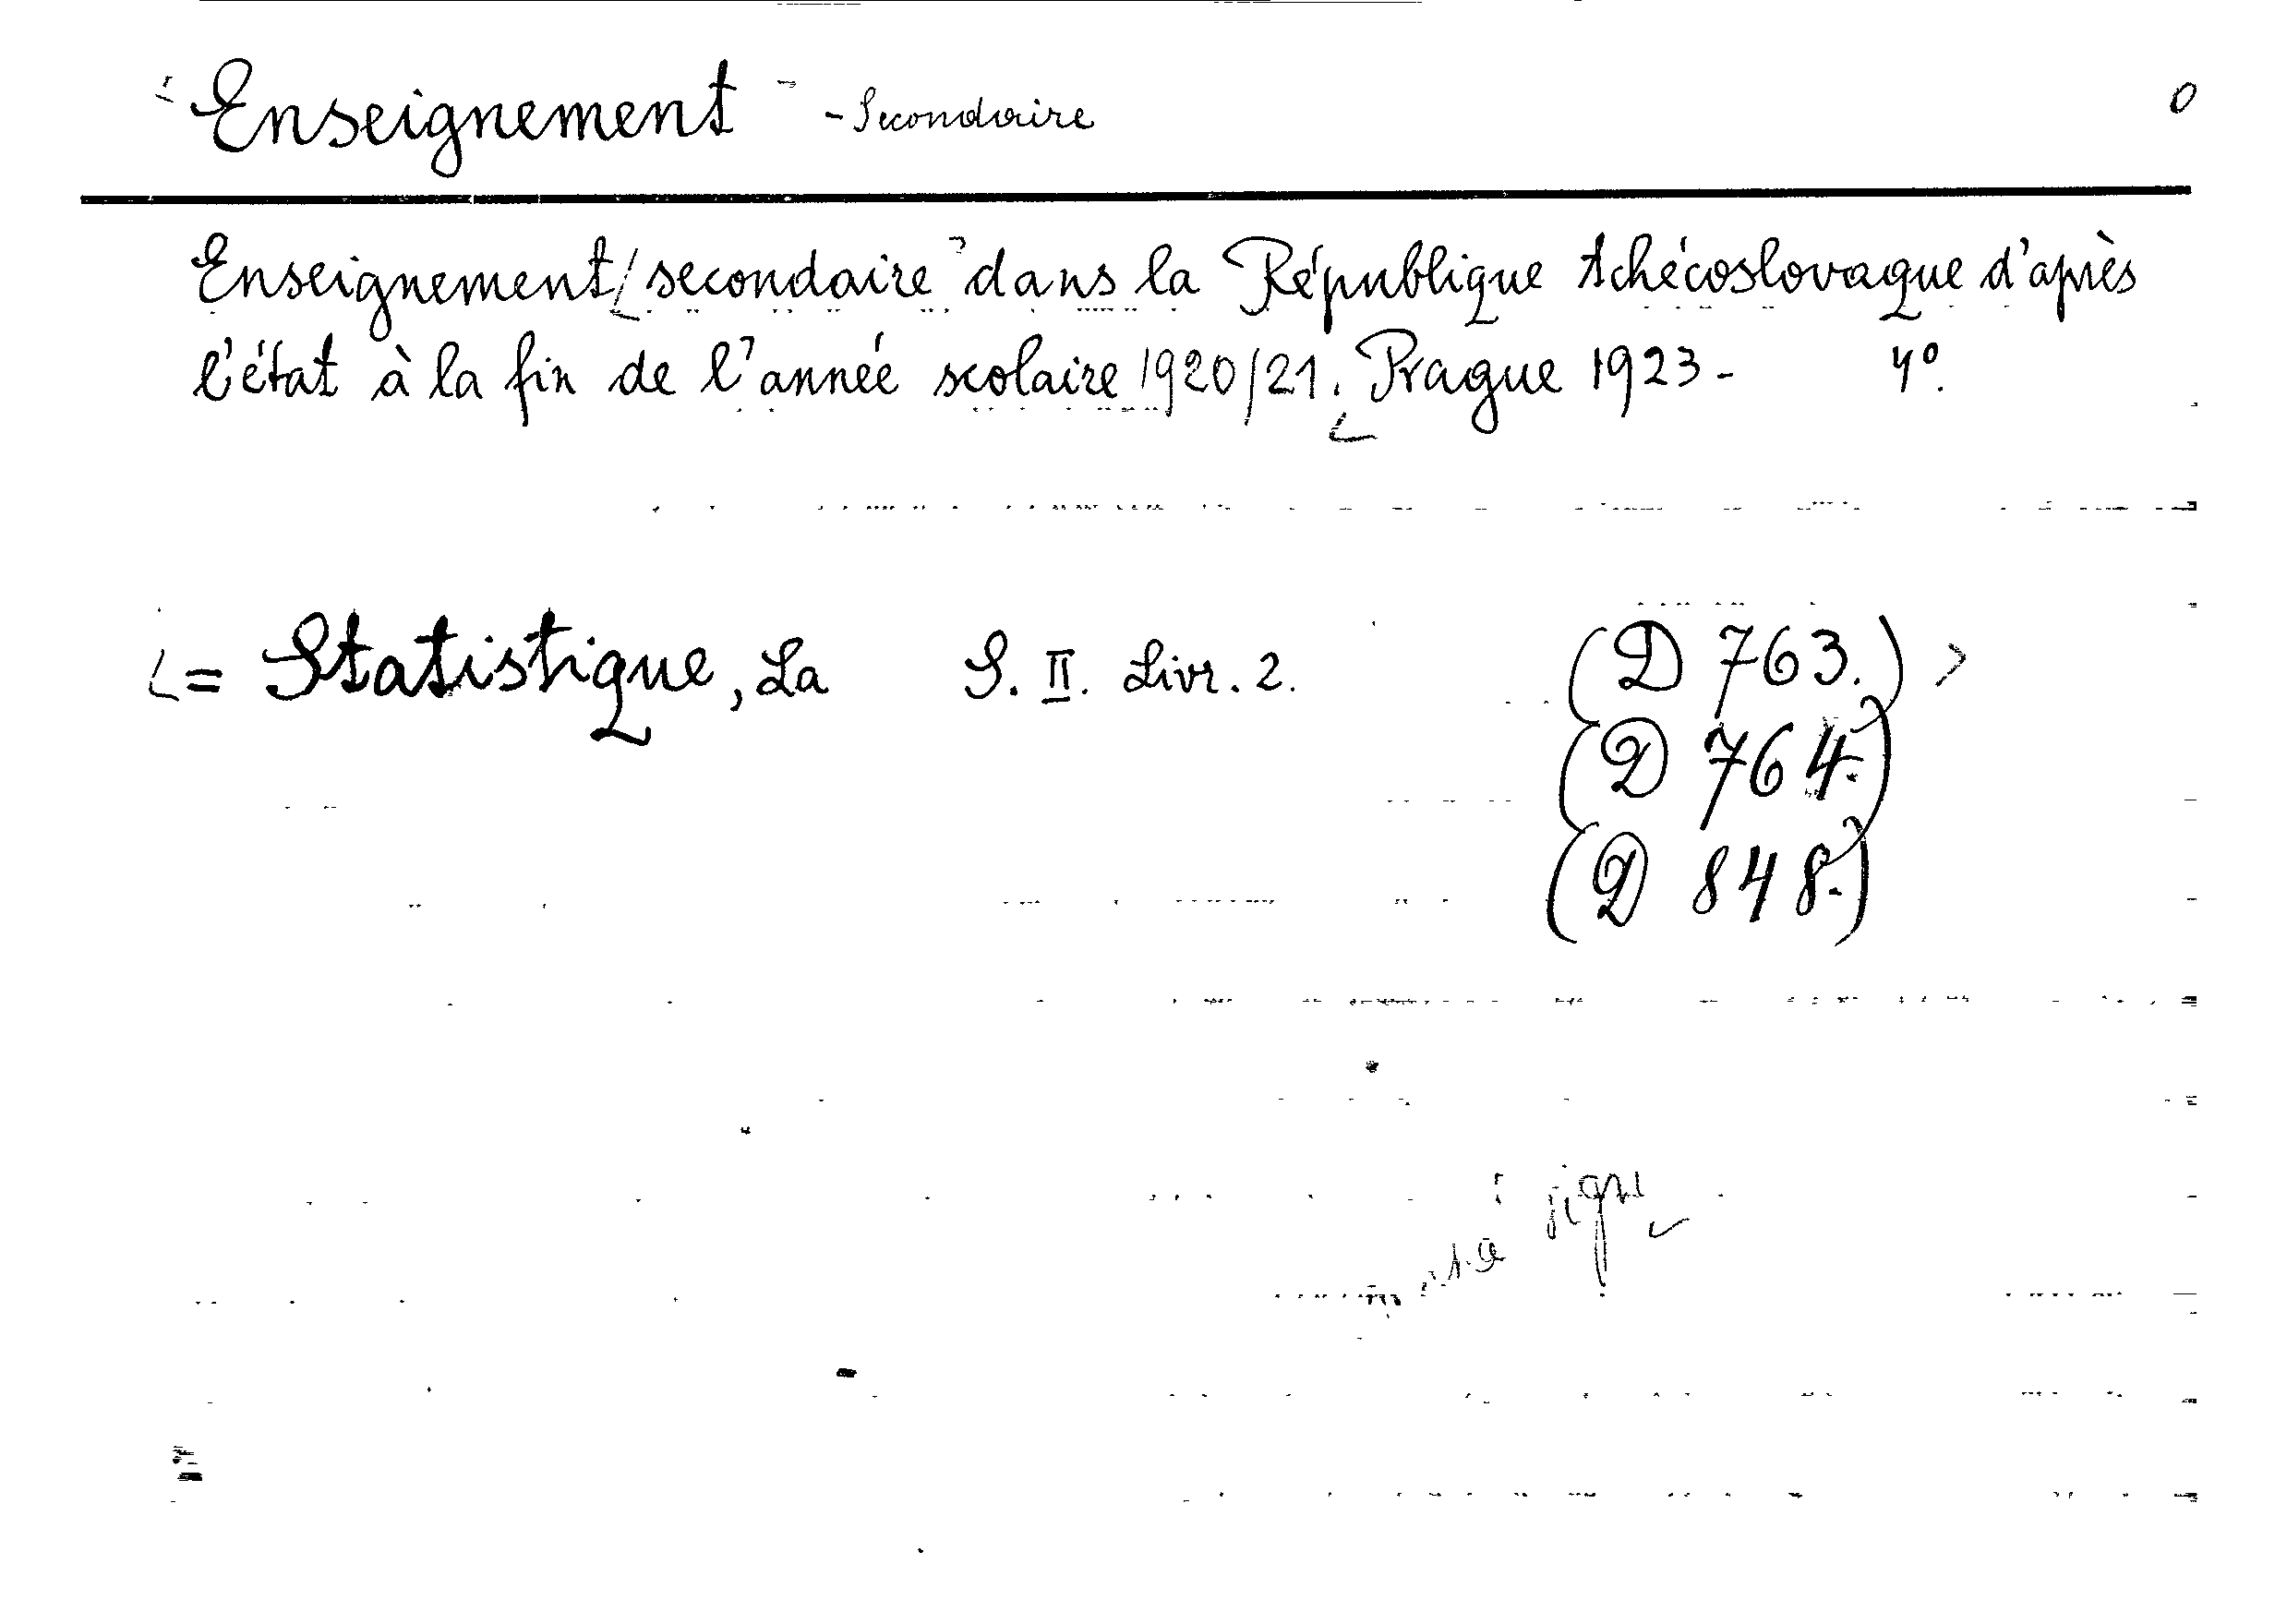 Enseignement - Secondaire 0
Enseignement secondaire dans la République tchécoslovaque d'après
l'état à la fin de l'année scolaire 1920/21. Prague 1923- 4°.
= Statistique, La S. II. Livr. 2. (D 763.)
(D 764.)
(D 848.)